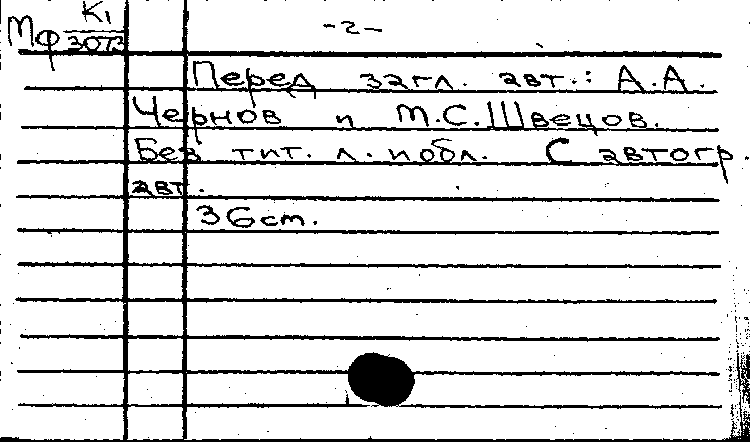 К1
Мф 3073
-2-
Перед загл. авт.: А.А.
Чернов и М.С.Швецов.
Без тит. л. и обл. С автогр.
авт.
36 ст.